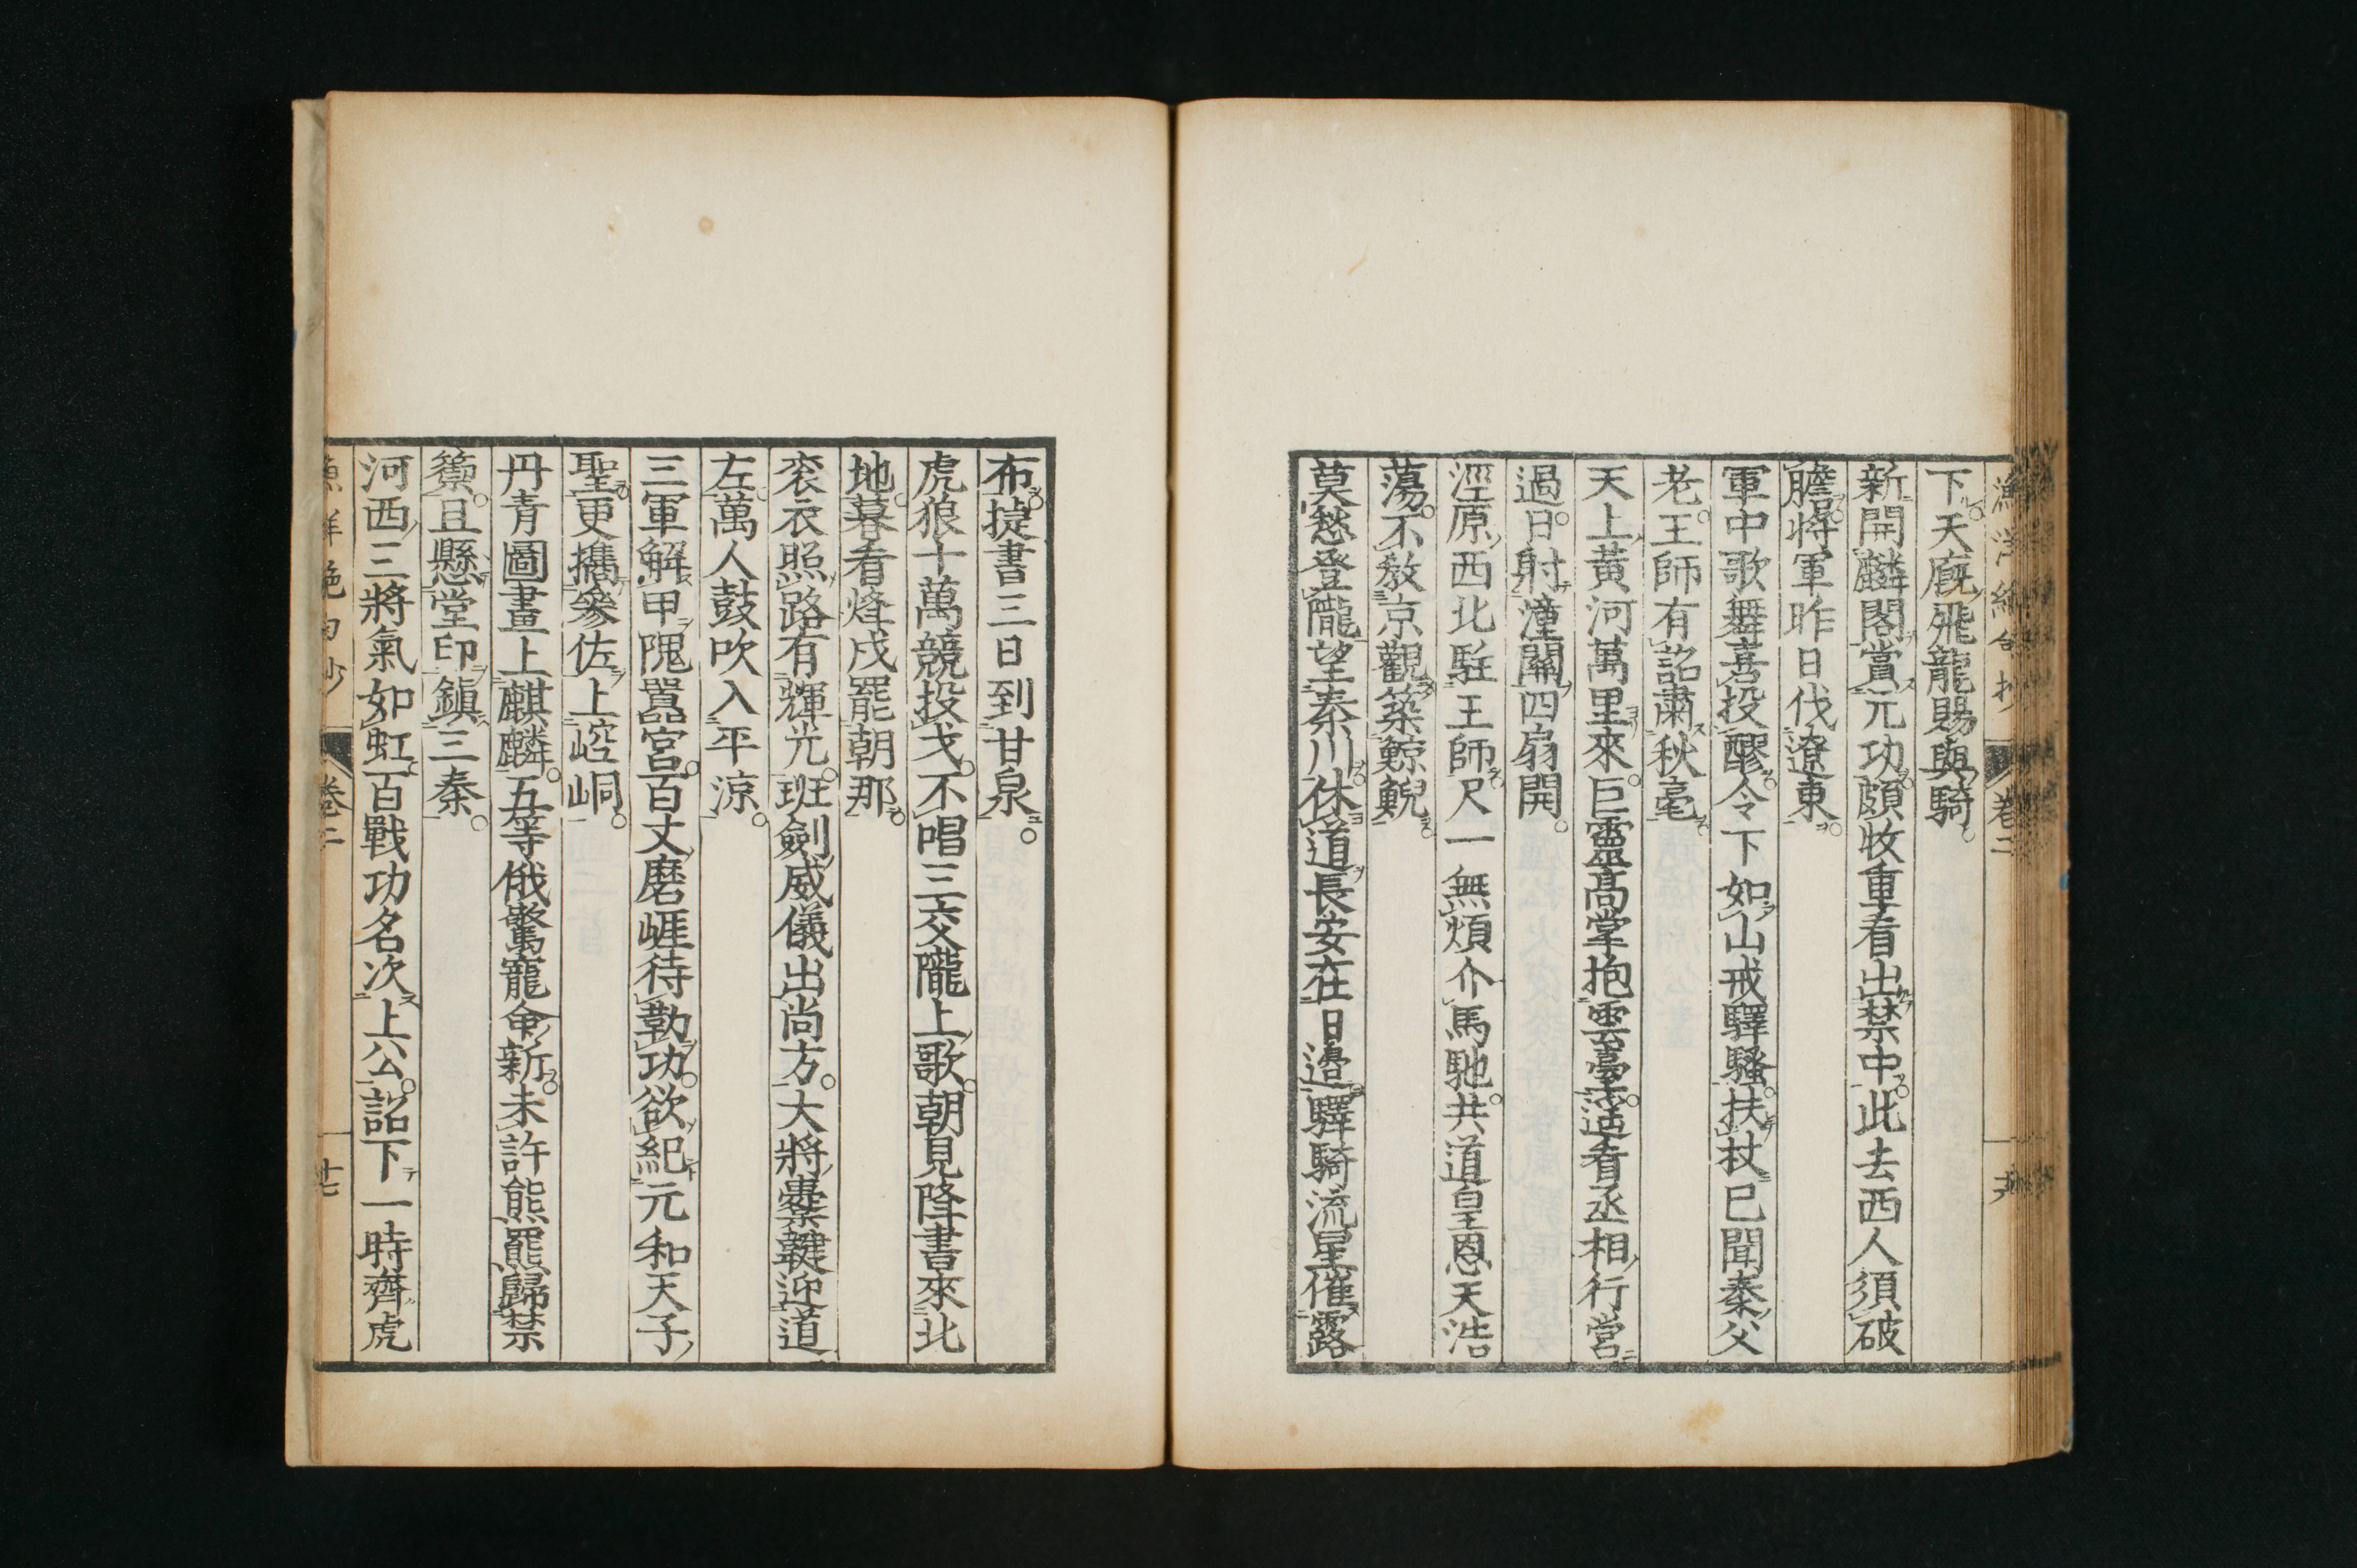 漁洋絶句抄 卷二
下天廐飛龍賜與騎
新開麟閣賞元功頗牧重看出禁中此去西人須破
膽將軍昨日伐遼東
軍中歌舞喜投醪令下如山戒驛騷扶杖已聞秦父
老王師有詔肅秋毫
天上黃河萬里來巨靈高掌抱雲臺遥看丞相行營
過日射潼關四扇開
涇原西北駐王師尺一無煩介馬馳共道皇恩天浩
蕩不教京觀築鯨鯢
莫愁登隴望秦川休道長安在日邉驛騎流星催露
布捷書三日到甘泉
虎狼十萬競投戈不唱三交隴上歌朝見降書來北
地暮看烽戍罷朝那
衮衣照路有輝光班劍威儀出尚方大將櫜鞬迎道
左萬人鼓吹入平涼
三軍解甲隗囂宮百丈磨崕待勒功欲紀元和天子
聖更攜參佐上崆峒
丹青圖畫上麒麟五等俄驚寵命新未許熊羆歸禁
籞且懸堂印鎮三秦
河西三將氣如虹百戰功名次上公詔下一時齊虎
漁洋絶句抄 卷二 十七